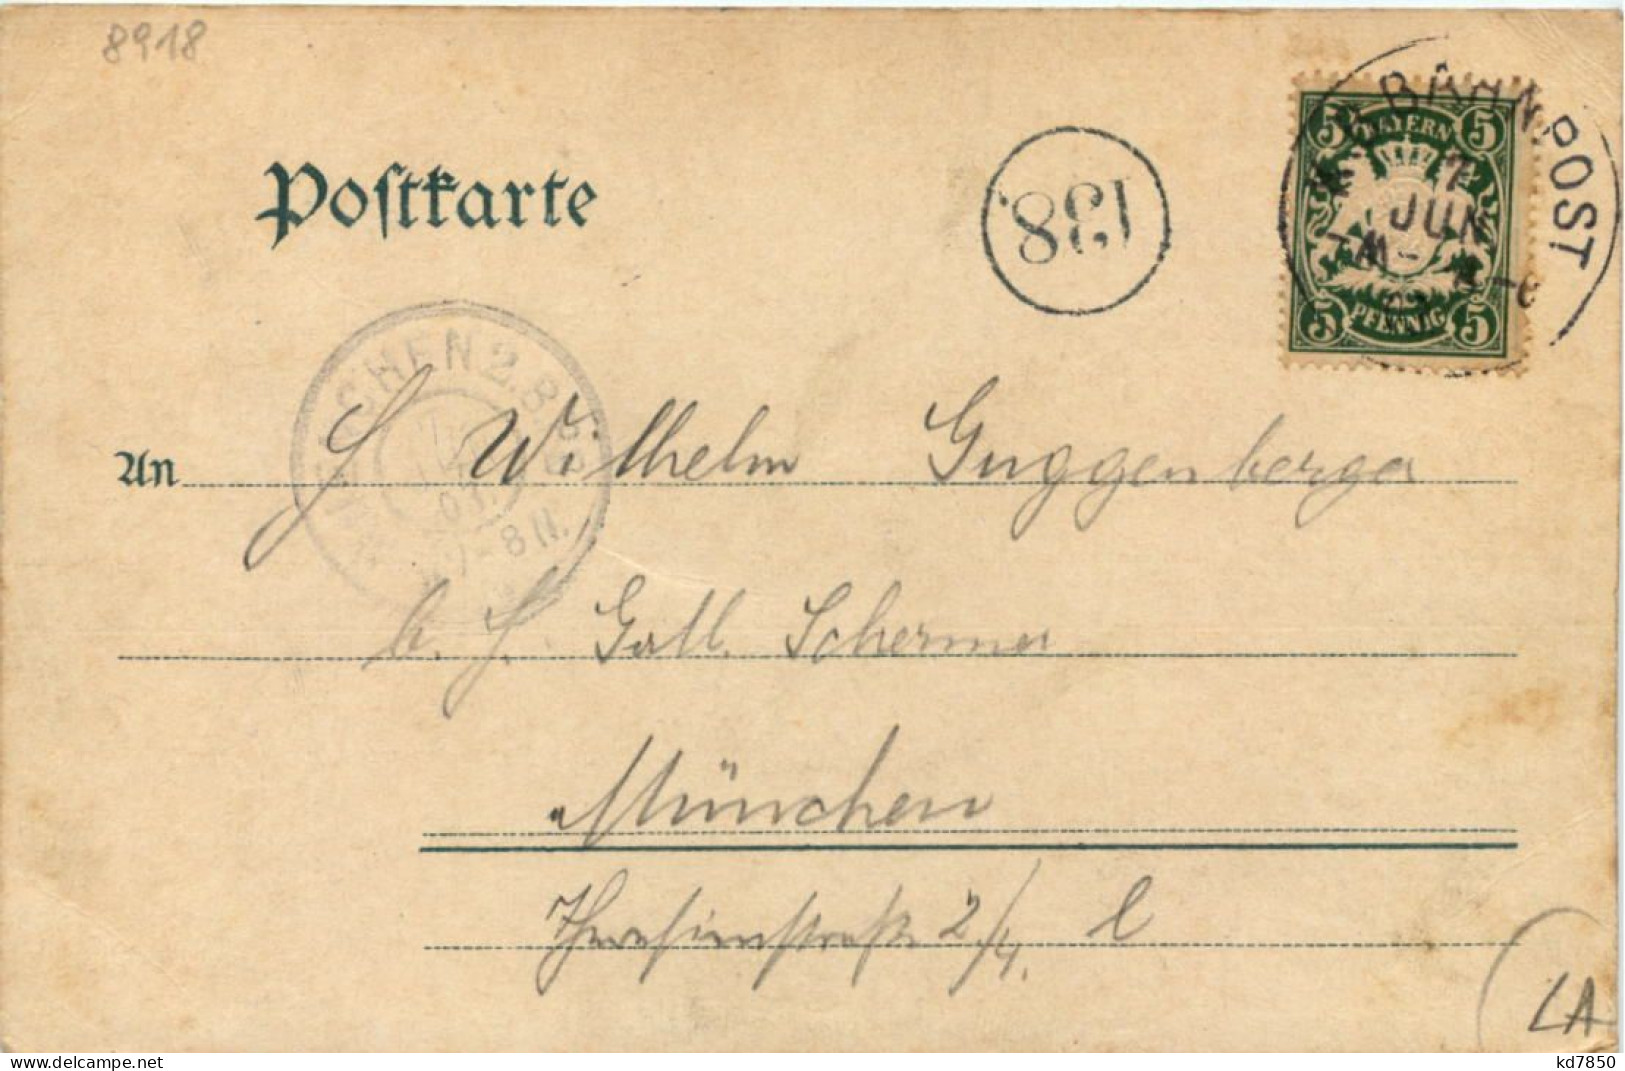 8918
Postkarte
138.
K.B.BAHNPOST
7
JUN
5 BAYERN 5
5 PFENNIG 5
MÜNCHEN 2.B.
03
7-8 N.
An H Wilhelm Guggenberger
b. H. Gall. Schermer
München
Theresienstraße 2/4. l
LA
www.delcampe.net
kd7850